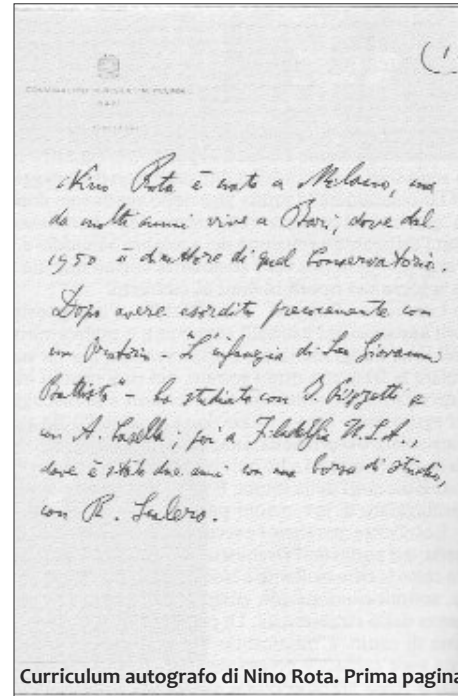 (1
CONSERVATORIO DI MUSICA "N. PICCINNI"
BARI
Nino Rota è nato a Milano, ma
da molti anni vive a Bari, dove dal
1950 è direttore di quel Conservatorio.
Dopo avere esordito precocemente con
un Oratorio - "L'infanzia di San Giovanni
Battista" - ha studiato con I. Pizzetti e
con A. Casella; poi a Filadelfia U.S.A.,
dove è stato due anni con una borsa di studio,
con R. Scalero.
Curriculum autografo di Nino Rota. Prima pagina